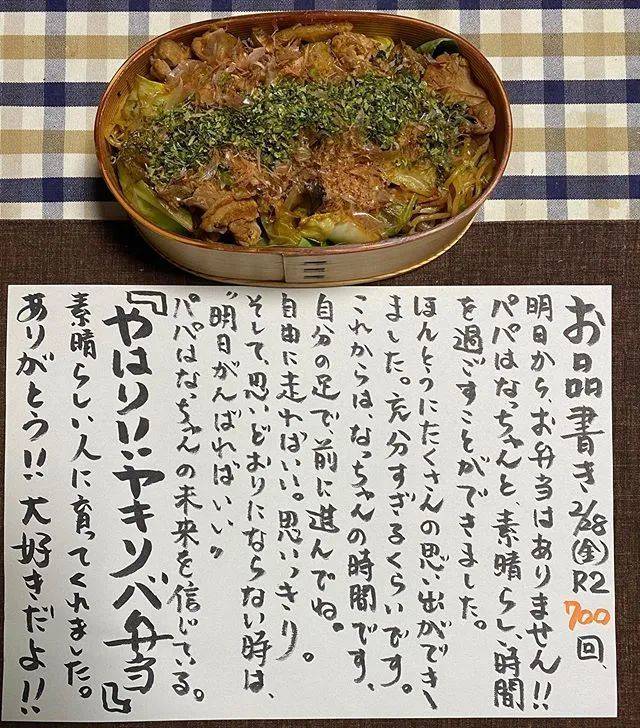 お品書き 2/28(金)R2 700回、
明日から、お弁当はありません!!
パパはなっちゃんと、素晴らしい時間
を過ごすことができました。
ほんとうにたくさんの思い出ができ
ました。充分すぎるくらいです。
これからは、なっちゃんの時間です、
自分の足で、前に進んでね。
自由に走ればいい。思いっきり。
そして、思いどおりにならない時は、
"明日がんばればいい"
パパはなっちゃんの未来を信じている。
『やはり!!ヤキソバ弁当』
素晴らしい人に育ってくれました。
ありがとう!!大好きだよ!!